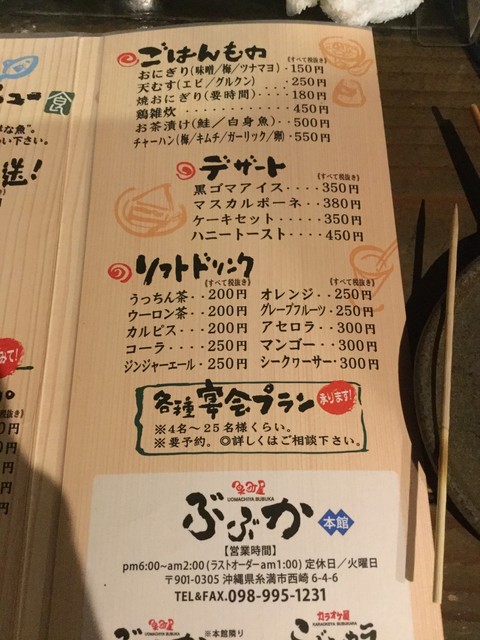 ごはんもの (すべて税抜き)
おにぎり(味噌/梅/ツナマヨ)・150円
天むす(エビ/グルクン)‥‥250円
焼おにぎり(要時間)‥‥180円
鶏雑炊‥‥‥‥‥‥450円
お茶漬け(鮭/白身魚)‥500円
チャーハン(梅/キムチ/ガーリック/卵)・550円
デザート (すべて税抜き)
黒ゴマアイス‥‥350円
マスカルポーネ‥380円
ケーキセット‥‥350円
ハニートースト‥450円
ソフトドリンク (すべて税抜き) (すべて税抜き)
うっちん茶‥200円 オレンジ‥250円
ウーロン茶‥200円 グレープフルーツ・250円
カルピス‥‥200円 アセロラ‥300円
コーラ‥‥‥250円 マンゴー‥300円
ジンジャーエール・250円 シークヮーサー・300円
各種宴会プラン 承ります!
※4名〜25名様くらい。
※要予約。◎詳しくはご相談下さい。
UOMACHIYA BUBUKA
ぶぶか 本館
【営業時間】
pm6:00~am2:00(ラストオーダーam1:00) 定休日/火曜日
〒901-0305 沖縄県糸満市西崎 6-4-6
TEL&FAX.098-995-1231
※本館隣り
カラオケ屋